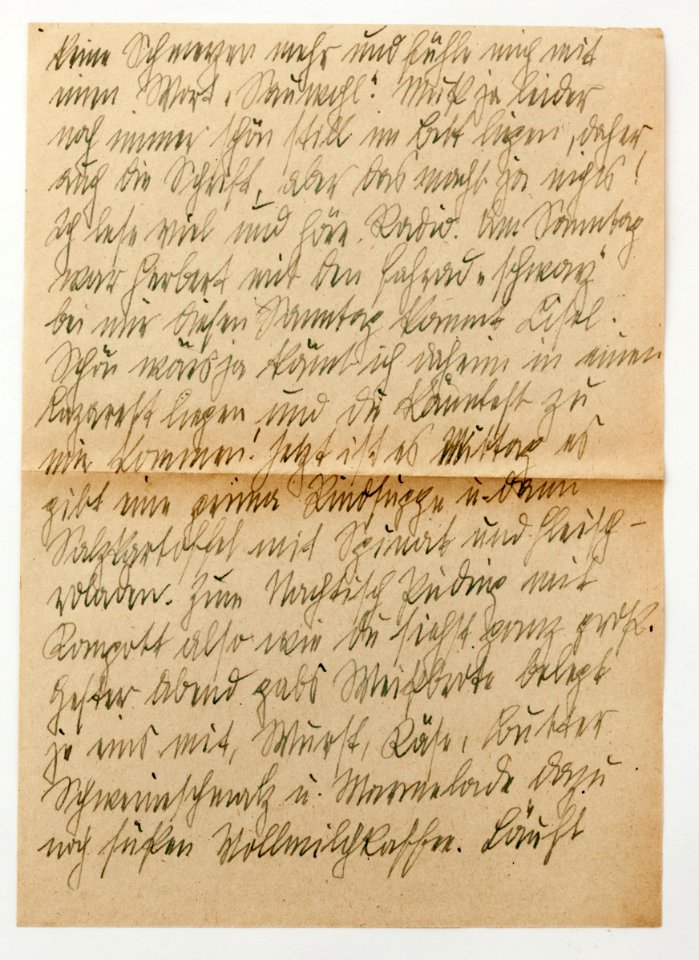 keine Schmerzen mehr und fühle mich mit
einen Wort „Sauwohl". Muß ja leider
noch immer schön still im Bett liegen, daher
auch die Schrift, aber das macht ja nichts!
Ich lese viel und höre Radio. Am Sonntag
war Herbert mit den Fahrad „schwarz"
bei mir diesen Sonntag kommt Lisel.
Schön wärs ja könnt ich daheim in einen
Lazarett liegen und du könntest zu
mir kommen! Jetzt ist es Mittag es
gibt eine prima Rindsuppe u. dann
Salzkartoffel mit Spinat und Fleisch-
roladen. Zum Nachtisch Puding mit
Kompott also wie du siehst ganz groß.
Gester Abend gabs Weißbrote belegt
je eins mit, Wurst, Käse, Butter
Schweineschmalz u. Marmelade dazu
noch süßen Vollmilchkaffee. Läuft